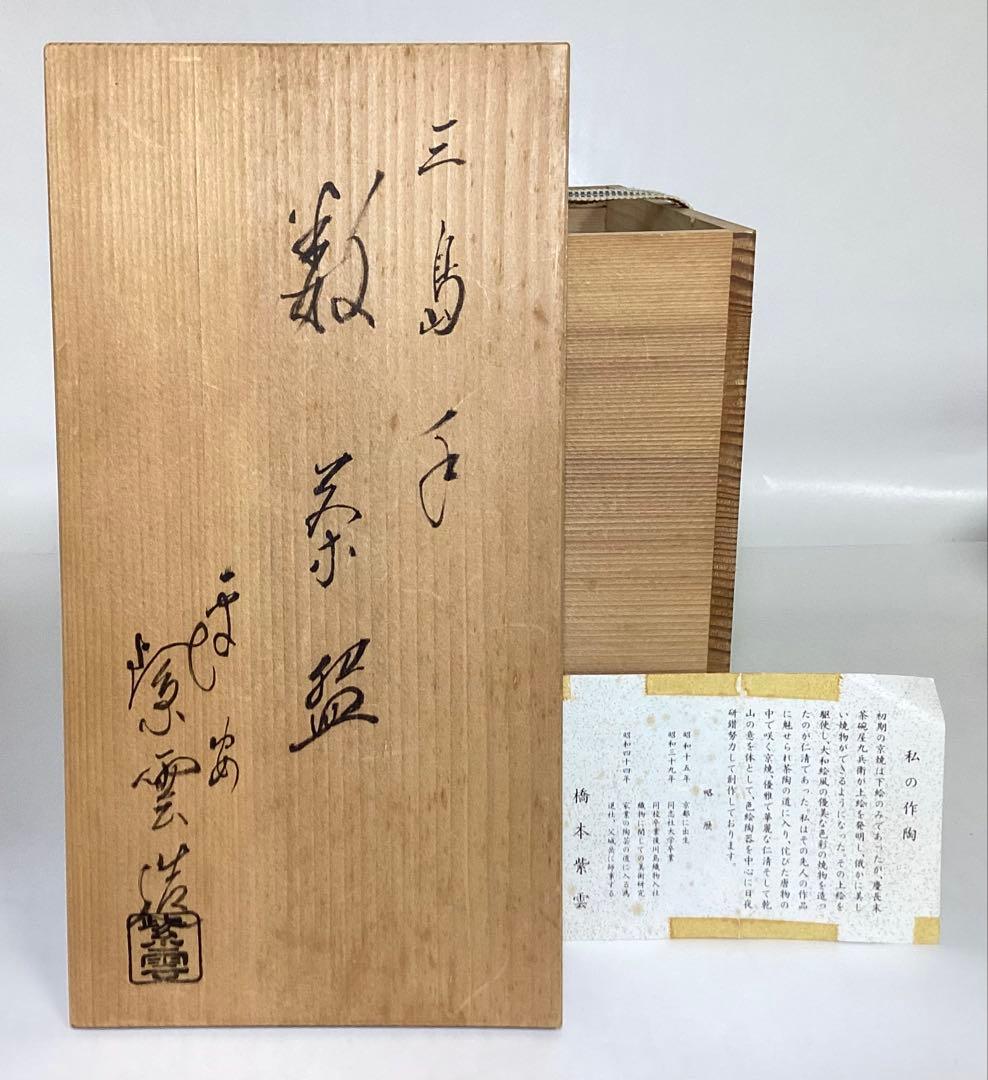 三島手
数茶盌
平安
紫雲造
紫雲
私の作陶
初期の京焼は下絵のみであったが、慶長末
茶碗屋九兵衛が上絵を発明し、俄かに美し
い焼物ができるようになった。その上絵を
駆使し大和絵風の優美な色彩の焼物を造っ
たのが仁清であった。私はその先人の作品
に魅せられ茶陶の道に入り、侘びた唐物の
中で咲く京焼、優雅で華麗な仁清そして乾
山の意を体として、色絵陶器を中心に日夜
研鑚努力して創作しております。
略歴
昭和十五年 京都に出生
昭和三十九年 同志社大学卒業
同校卒業後川島織物入社
織物に関しての美術研究
昭和四十四年 家業の陶芸の道に入る為
退社、父城岳に師事する
橋本紫雲